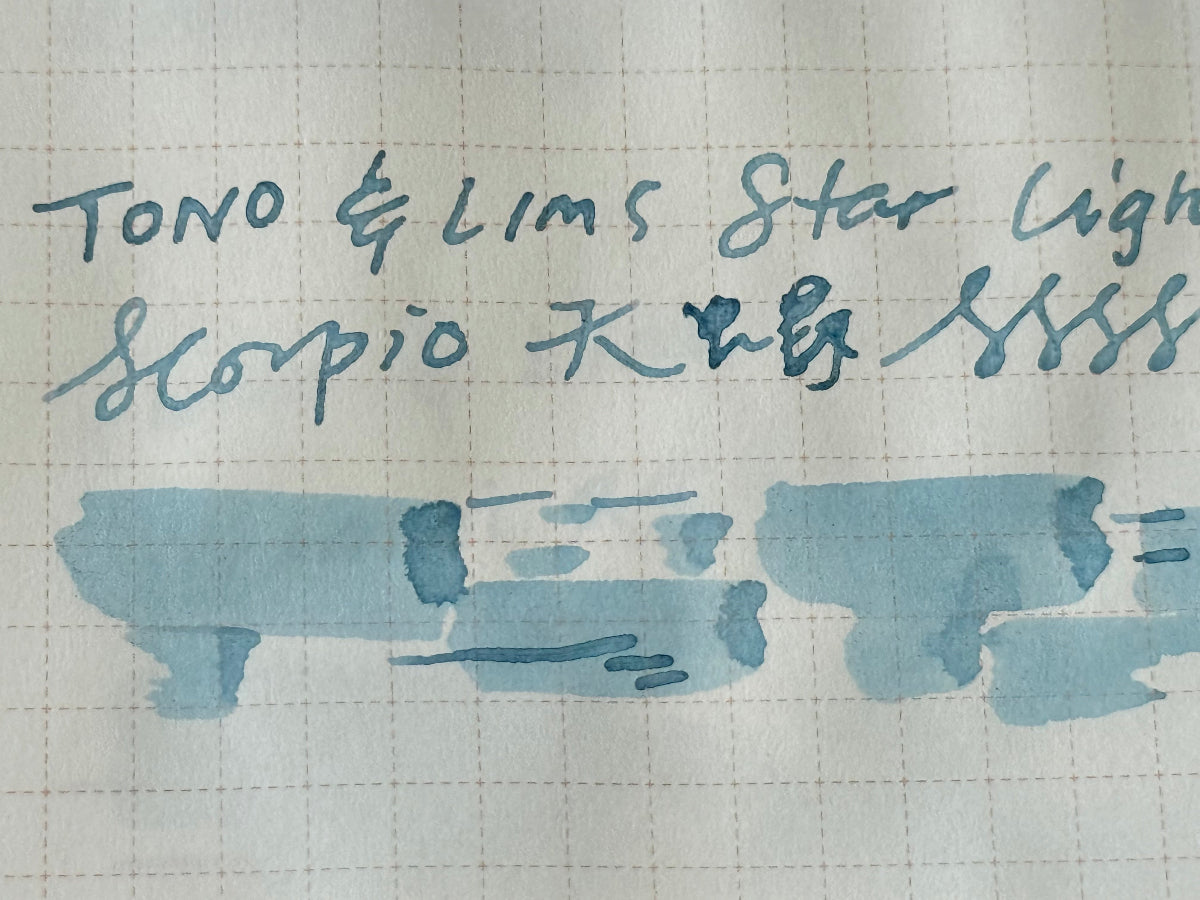 TONO & Lims Star Ligh
Scorpio 天蝎